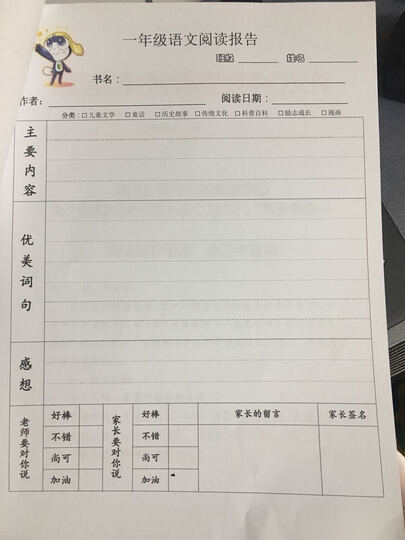 一年级语文阅读报告
班级 姓名
书名：
作者： 阅读日期：
分类：□儿童文学 □童话 □历史故事 □传统文化 □科普百科 □励志成长 □漫画
主要内容
优美词句
感想
老师要对你说
好棒
不错
尚可
加油
家长要对你说
好棒
不错
尚可
加油
家长的留言
家长签名